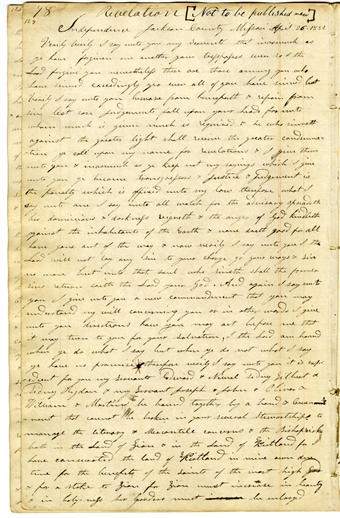 78 Revelation [Not to be published now]
Independence Jackson County Missori April 26 1832
Verily verily I say unto you my servents that inasmuch as
ye have forgiven one another your trespasses even so I the
Lord forgive you nevertheless there are those among you who
have sined exceedingly yea even all of you have sined but
verily I say unto you beware from henceforth & refrain from
sin lest sore judgements fall upon your heads for unto
whom much is given much is required & he who sinneth
against the greater light shall receive the greater condemna
tion ye call upon my name for revelations & I give them
unto you & inasmuch as ye keep not my sayings which I give
unto you ye become transgressors & Justice & Judgement is
the penalty which is affixed unto my law therefore what I
say unto one I say unto all watch for the advisary spreadeth
his dominions & darkness reigneth & the anger of God kindleth
against the inhabitants of the Earth & none doeth good for all
have gone out of the way & now verily I say unto you I the
Lord will not lay any Sin to your charge go your ways & sin
no more but unto that soul who sinneth shall the former
sins return saith the Lord your God And again I say unto
you I give unto you a new commandment that you may
understand my will concerning you or in other words I give
unto you directions how you may act before me that
it may turn to you for your Salvation I the Lord am bound
when ye do what I say but when ye do not what I say
ye have no promise therefore verily I say unto you it is expe
dient for you my servents Edward & Newel Sidney Gilbert &
Sidney Rigdon & my servant Joseph & John & Oliver &
William & Martin to be bound together by a bond & Covenant
that cannot be broken in your several Stewartships to
manage the literary & Mercantile concerns & the Bishoprick
both in the Land of Zion & in the Land of Kirtland for I
have consecrated the land of Kirtland in mine own due
time for the benefits of the saints of the most high
& for a stake to Zion for Zion must increase in beauty
& in holyness her borders must be enlarged